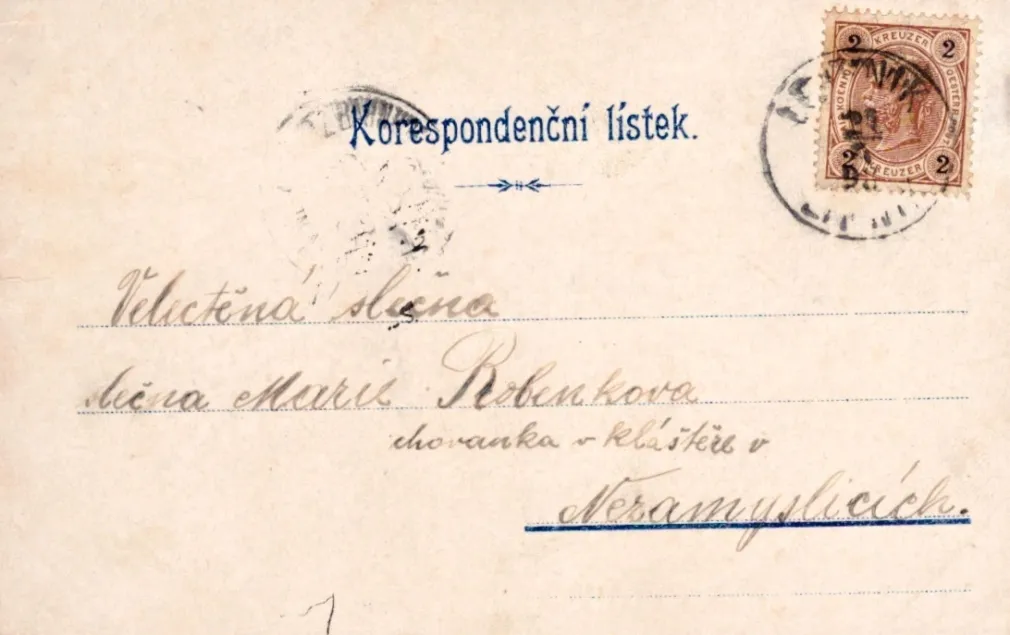 Korespondenční lístek.
2 KREUZER 2
2 KREUZER 2
Velectěná slečna
slečna Marie Robenkova
chovanka v klášteře v
Nezamyslicích.